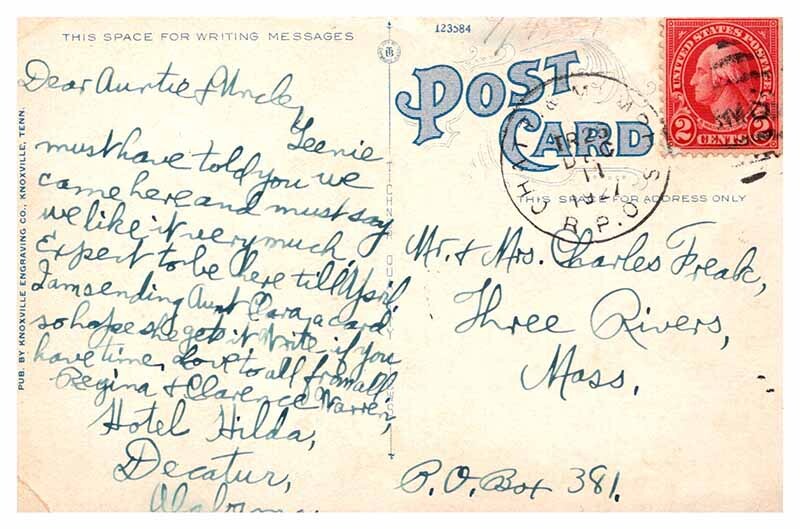 THIS SPACE FOR WRITING MESSAGES
Dear Auntie & Uncle,
Teenie
must have told you we
came here and must say
we like it very much,
Expect to be here till April,
I am sending Aunt Clara a card
so hope she gets it Write if you
have time, Love to all from all
Regina & Clarence Warren,
Hotel Hilda,
Decatur,
Alabama
PUB. BY KNOXVILLE ENGRAVING CO., KNOXVILLE, TENN.
123584
POST
CARD
CHAT. & MEMPHIS
TR 23
DEC
11
1927
R.P.O.
UNITED STATES POSTAGE
2 CENTS 2
THIS SPACE FOR ADDRESS ONLY
Mr. & Mrs. Charles Freak,
Three Rivers,
Mass.
P.O. Box 381.